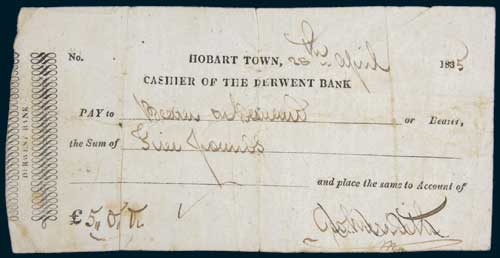 No.
HOBART TOWN, April 1835
CASHIER OF THE DERWENT BANK
PAY to or Bearer,
the Sum of Five Pounds
and place the same to Account of
£ 5, 0, 0.
DERWENT BANK